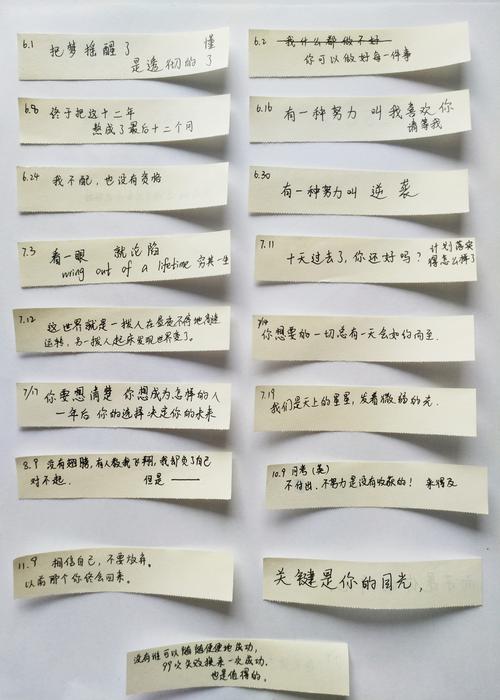 6.1 把梦摇醒了 懂
是透彻的了
6.2 我什么都做不好
你可以做好每一件事
6.8 终于把这十二年
熬成了最后十二个月
6.16 有一种努力 叫我喜欢你
请等我
6.24 我不配，也没有资格
6.30 有一种努力叫 逆袭
7.3 看一眼 就沦陷
wring out of a lifetime 穷其一生
7.11 十天过去了，你还好吗？ 计划落实
得怎么样了
7.12 这世界就是一拨人在昼夜不停地高速
运转，另一拨人起床发现世界变了。
7/14 你想要的一切总有一天会如约而至.
7/17 你要想清楚 你想成为怎样的人
一年后 你的选择决定你的未来
7.19
我们是天上的星星，发着微弱的光.
8.9 没有翅膀，有人教我飞翔，我却负了自己
对不起. 但是 ——
10.9 月考（英）
不付出、不努力是没有收获的！ 来得及
11.9 相信自己，不要放弃。
以前那个你终会回来。
关键是你的目光，
没有谁可以随随便便地成功，
99次失败换来一次成功，
也是值得的。